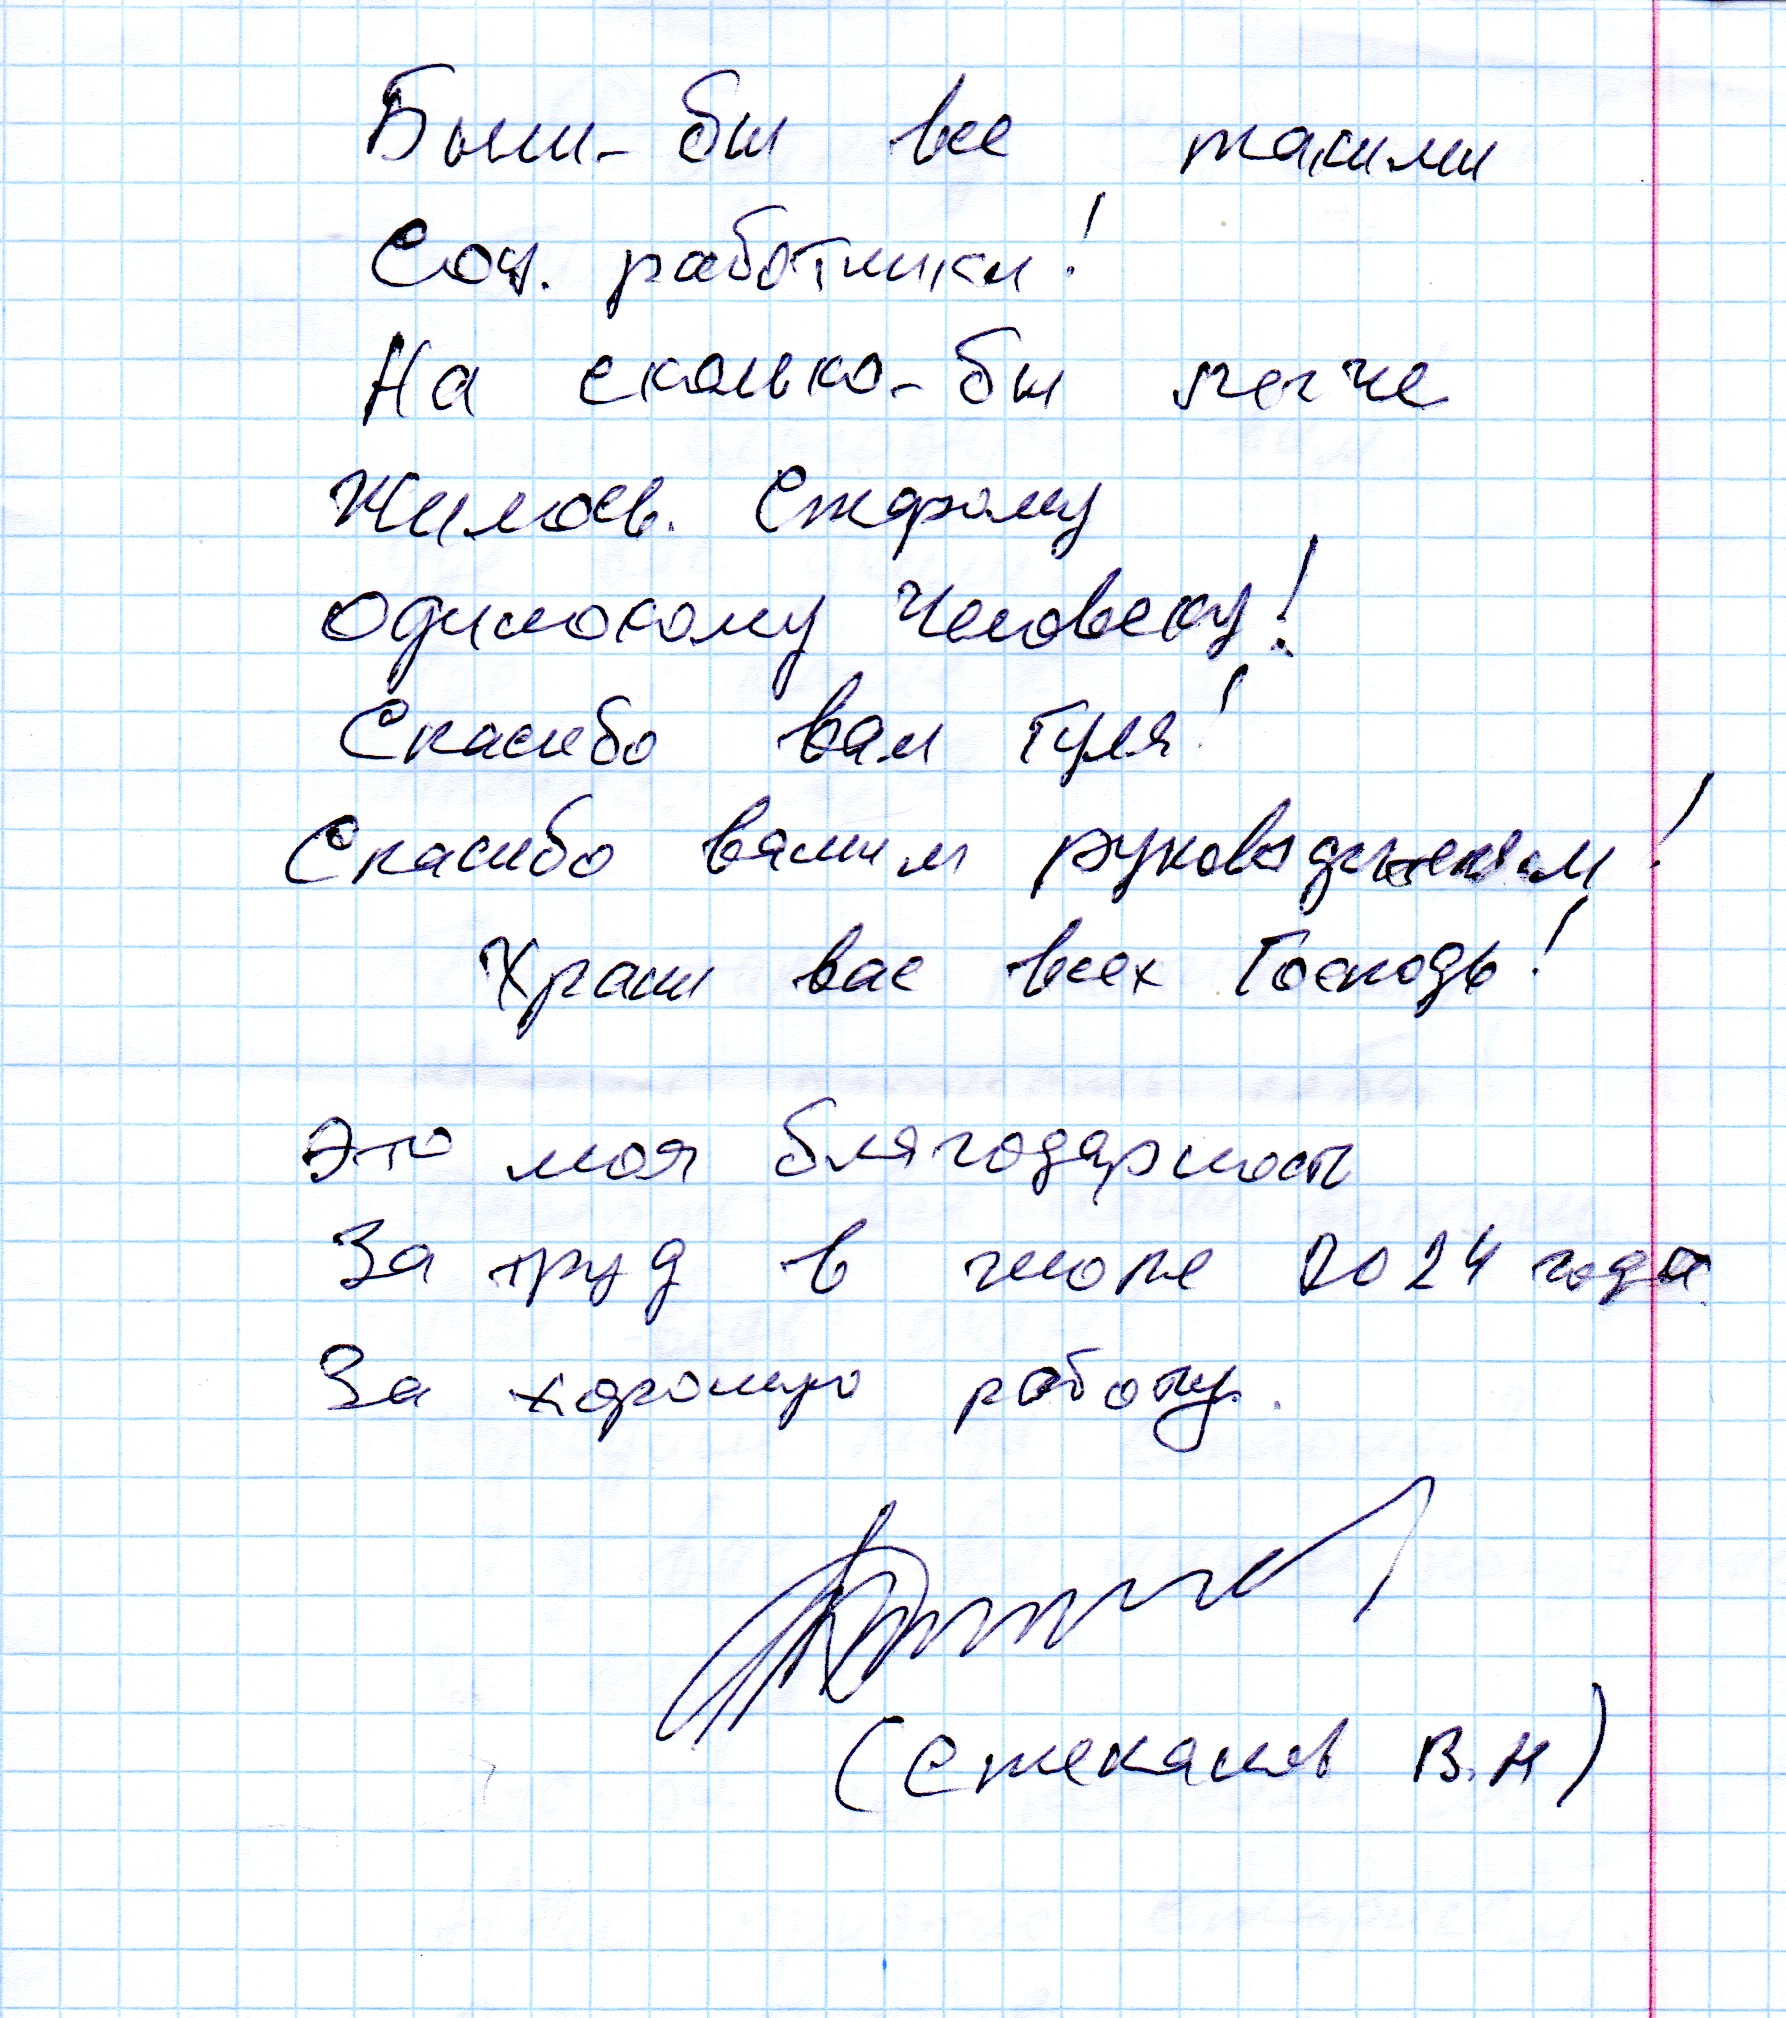 Были-бы все такими
Соц. работники!
На сколько-бы легче
Жилось. Старому
одинокому человеку!
Спасибо вам Гуля!
Спасибо вашим руководителям!
Храни вас всех Господь!
Это моя благодарность
За труд в июле 2024 года
За хорошую работу.
(Стеканов В.Н)